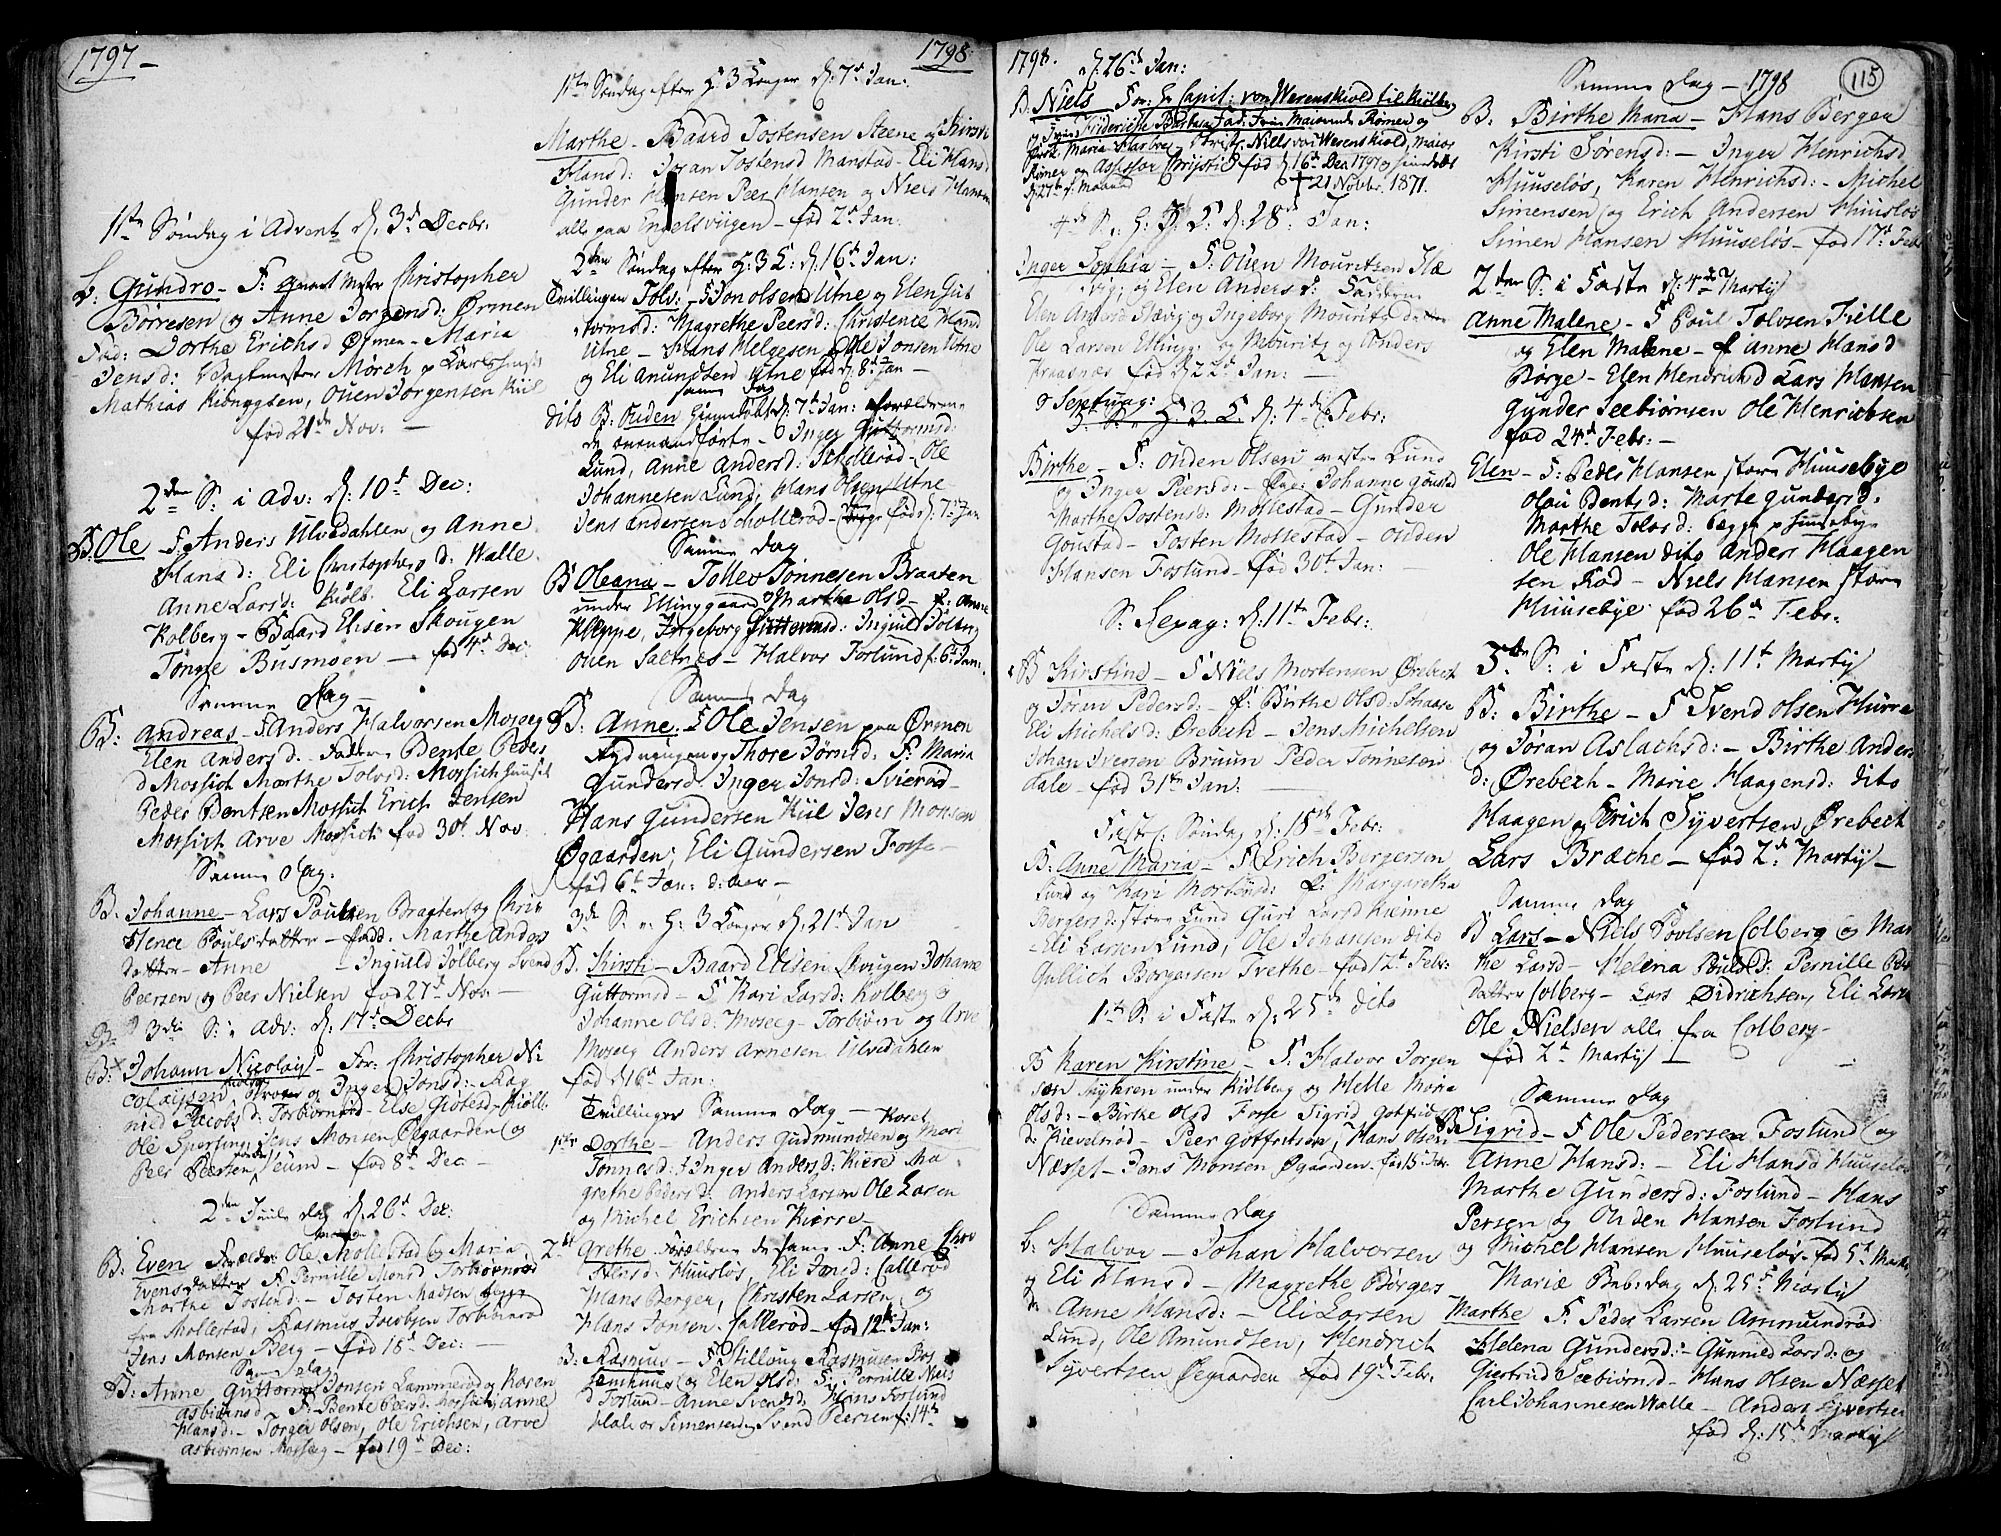 1797 -
1ste Søndag i Advent d. 3d Decbr:
b: Gundro - F: Christopher
Børresen og Anne Jorgensd: Ørmen
Fad: Dorthe Erichsd Ørmen - Maria
Jensd: Vagtmester Mørch
Mathias Ouen Jorgensen Kiil
fød 21de Nov: -
2den S: i Adv: d: 10d Dec:
B: Ole F. Anders Ulvedahlen og Anne
Hansd: Eli Christophersd: Walle
Anne Larsd: Kiølb. Eli Larsen
Kolberg - Baard Elisen Skougen
Tonne Busmoen - fød 4d Dec:
Samme Dag -
B: Andreas - F. Anders Halvorsen Moseeg
Elen Andersd. Faddere Bente Peders
d Mossigt Marthe Tolvsd: Mossich
Peder Bentsen Mossich Erich Jensen
Mossich Arve Mossich fød 30t Nov:
Samme Dag:
B. Johanne - Lars Poulsen Braaten og Chri
stence Poulsdatter - Fadd: Marthe Anders
datter - Anne - Inguld Jølberg Svend
Peersen og Peer Nielsen fød 27d Nov -
3die S: i Adv: d: 17d Decbr
B: Johann Nicolay - For: Christopher Ni
colaysen og Inger Jonsd: Rag
nild Jacobsd: Torbiørnrød - Else Kiølb:
Ole Sperling, Jens Monsen Øegaarden og
Peer Peersen Veum - fød 8d Dec -
2den Juule Dag d: 26d Dec:
B: Even Foreldre: Ole Mollestad og Maria
Evensdatter F: Pernille Monsd Torbiørnrød
Marthe Tostensd: - Tosten Madsen begge
fra Mollestad, Rasmus Jacobsen Torbiörnrød
Jens Monsen Berg - fød 18d Dec: -
Samme Dag
B: Anne Guttorm Jonsen Lammerød og Karen
Asbiørnsd F: Bente Peersd: Mossich, Anne
Hansd: - Jorger Olsen, Ole Erichsen, Arve
Asbiørnsen Mosseg - fød 19d Dec:
1798
1ste Søndag efter H: 3 Konger d: 7d Jan:
Marthe - Baard Tostensen Steene og Kirsti
Hansd: Joran Tostensd Marstad - Eli Hansd
Gunder Hansen Peer Hansen og Niels Hansen
alle paa Engelsviigen - fød 2d Jan:
2den Søndag efter H: 3 K: d: 16d Jan:
Tvillingen Tolv: - F Jon Olsen Utne og Elen Gut
tormsd: Magrethe Peersd: Christence Hansd
Utne - Hans Helgesen Ole Jonsen Utne
og Eli Amundsen Utne fød d: 8d Jan -
samme Dag
dito B: Ouden hiemdøbt d: 7d Jan: forældrene
de ovenanførte - Inger Guttormsd:
Lund, Anne Andersd: Schollerød - Ole
Johannesen Lund, Hans Olsen Utne
Jens Andersen Schollerød - fød d: 7d Jan
Samme Dag
B Oleana - Tollev Tønnesen Braaten
under Ellinggaard og Marthe Olsd - f: Anne
Kleppe, Ingeborg Guttormsd: Inguld Jølberg
Ouen Saltnes - Halvor Forlund f: 6d Jan:
Samme Dag
B: Anne: F Ole Jensen paa Ørmen
og Thore Jornsd: F: Maria
Gundersd: Inger Jonsd: Svierød -
Hans Gundersen Kiil Jens Monsen
Øgaarden, Eli Gundersen Fosse -
fød 6d Jan: d: aar -
3de S: e: H: 3 Konger d: 21d Jan
B. Kirsti - Baard Elisen Skougen Johanne
Guttormsd - F Kari Larsd: Kolberg og
Johanne Olsd: Moseeg - Torbiørn og Arve
Moseeg Anders Arnesen Ulvedahlen
fød d 16d Jan:
Tvillinger Samme Dag -
1ste Dorthe - Anders Gudmundsen og Mari
Tønnesd: Inger Andersd: Kiere Ma
grethe Pedersd: Anders Larsen Ole Larsen
og Michel Erichsen Kierre -
2d: Grethe Forældrene de samme F: Anne Chri
stensd: Huusløs, Eli Jonsd: Callerød
Hans Berger, Christen Larsen og
Hans Jonsen Callerød - fød 12te Jan:
B: Rasmus - F Rasmusen
og Elen Olsd: F: Pernille Niels
d Foslund - Anne Svendsd: Hans Foslund
Halvor Simensen og Svend Peersen f: 14d
1798. d: 26d Jan:
B. Niels For: Hr Capit: von Werenskiold til Kiølberg
og Fru Friderische Barbara Fad: Fru Majorinde Rømer og
Frøk: Maria Niels von Werenskiold, Major
Rømer og Assessor Christi fød 16d Dec 1797
d 27de s: Maaned † 21 Novbr. 1871.
4de S. e. H. 3 K. d: 28d Jan:
Inger Sophia - F: Ouen Mouritsen Slæ
vig, og Elen Andersd: Faddere
Elen Andersd Slævig og Ingeborg Mouritz datter
Ole Larsen Elling og Mouritz og Anders
Kraagnæs fød d 22d Jan: -
Septuag:
5te S. e. H. 3. K. d: 4d Febr:
Birthe - F: Ouden Olsen vestre Lund
og Inger Peersd: - Johanne Goustad
Marthe Tostensd: Mollestad - Gunder
Goustad - Tosten Mollestad - Ouden
Hansen Foslund - fød 30t Jan: -
S: Sexag: d: 11te Febr:
B Kirstine - F Niels Mortensen Ørebech
og Jöran Pedersd: - f: Birthe Olsd: Schaare
Eli Michelsd: Ørebech - Jens Michelsen
Johan Iversen Bruun Peder Tonnesen
Dale - fød 31te Jan: -
Faste: Søndag d: 18de Febr:
B: Anne Maria - F Erich Bergersen
Lund og Kari Mortensd: f: Margaretha
Bergersd: store Lund Guri Larsd Kienne
Eli Larsen Lund, Ole Johansen dito
Gullich Borgersen Trethe - fød 12te Febr:
1ste S: i Faste d: 25de dito
B Karen Kirstine - F: Halvor Jorgen
sen under Kiølberg og Helle Maria
Olsd: - Birthe Olsd Fosse Sigrid Gotfrid
d: Kievelsrød - Peer Gotfritsen, Hans Olsen
Næsset - Jens Monsen Øgaarden - fød 15de Febr:
Samme Dag
b: Halvor - Johan Halvorsen
og Eli Hansd - Magrethe Börgers
d: Anne Hansd: - Eli Larsen
Lund, Ole Amundsen, Hendrich
Syvertsen Øegaarden fød 19d Febr:
Samme Dag - 1798 115
B: Birthe Maria - Hans Berger
Kirsti Sørensd: - Inger Henrichsd
Huuseløs, Karen Henrichsd: - Michel
Simensen og Erich Andersen Huusløs
Simen Hansen Huuseløs - fød 17d Febr
2den S: i Faste d: 4de Martij
Anne Malene - F Poul Tolvsen Fielle
og Elen Malene - f Anne Hansd
Börge - Elen Hendrichsd Lars Hansen
Gunder Seebiørnsen Ole Henrichsen
fød 24d Febr: -
Elen - F: Peder Hansen store Huusebye
Olau Bentsd: Marte Gundersd:
Marthe Tolvsd: begge p Huusebye
Ole Hansen dito Anders Haagen
sen Rød - Niels Hansen store
Huusebye fød 26d Febr:
3die S: i Faste d: 11t Martij
B: Birthe - F Svend Olsen Hurre
og Jøran Aslachsd: - Birthe Anders
d: Ørebech - Marie Haagensd: dito
Haagen og Erich Syvertsen Ørebech
Lars Bræche - fød 2d Martij -
Samme Dag
B Lars - Niels Povlsen Colberg og Mar
the Larsd - Helena Poulsd: Pernille
datter Colberg - Lars Didrichsen, Eli Larsen
Ole Nielsen alle fra Colberg
fød 2d Martij -
Samme Dag
B: Sigrid - F Ole Pedersen Foslund og
Anne Hansd: - Eli Hansd Huuseløs
Marthe Gundersd: Foslund - Hans
Persen og Ouden Hansen Foslund
og Michel Hansen Huuseløs - fød 5d Martij
Mariæ Beb: Dag d: 25d Martij
Marthe F: Peder Larsen Ammundrød
Helena Gundersd: - Gunnild Larsd: og
Giertrud Seebiørnsd - Hans Olsen Næsset
Carl Johannesen Walle - Anders Syvertsen
fød d: 15d Martij